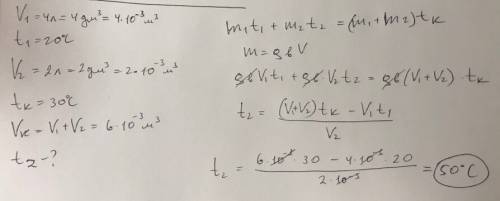 V₁ = 4л = 4 дм³ = 4·10⁻³ м³
t₁ = 20°C
V₂ = 2л = 2 дм³ = 2·10⁻³ м³
tк = 30°C
Vк = V₁ + V₂ = 6·10⁻³ м³
t₂ - ?
m₁t₁ + m₂t₂ = (m₁ + m₂) tк
m = ρв V
ρв V₁t₁ + ρв V₂t₂ = ρв (V₁ + V₂) · tк
t₂ = ((V₁+V₂) tк − V₁t₁) / V₂
t₂ = (6·10⁻³ · 30 − 4·10⁻³ · 20) / (2·10⁻³) = 50°C